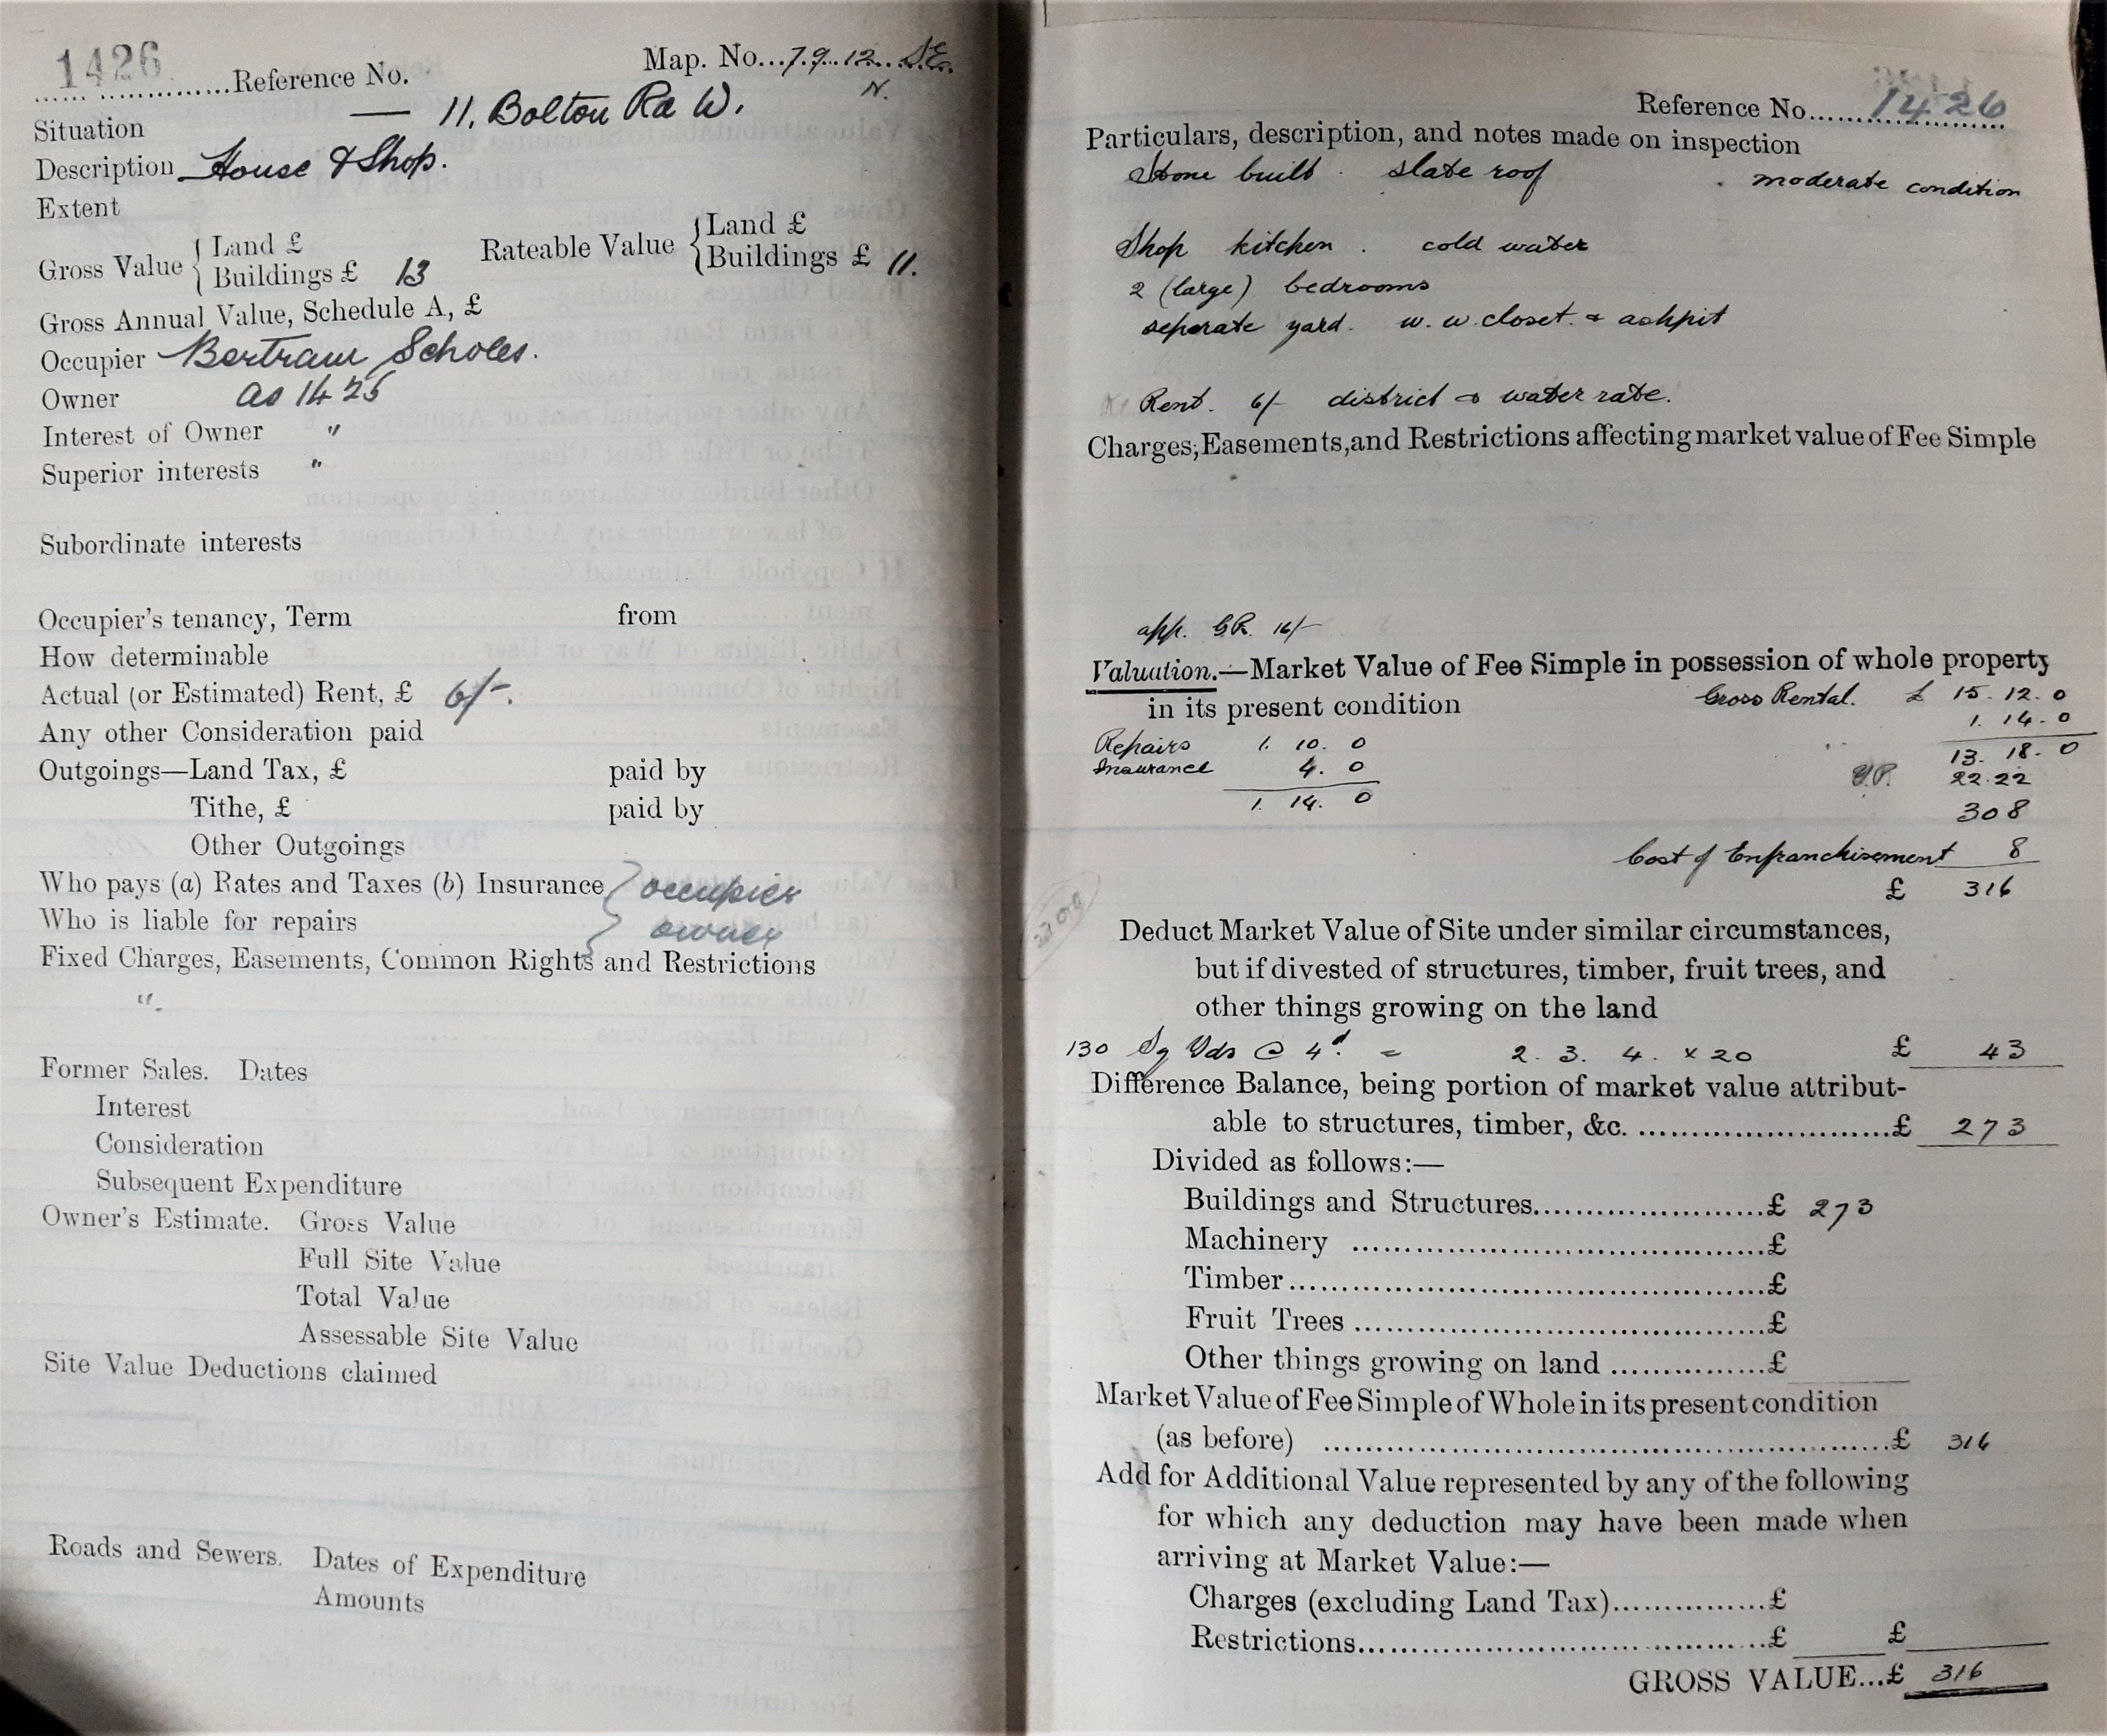 1426 Reference No. Map. No...79.12. S.E.
N.
Situation — 11. Bolton Rd W.
Description House & Shop.
Extent
Gross Value { Land £
Buildings £ 13
Rateable Value { Land £
Buildings £ 11.
Gross Annual Value, Schedule A, £
Occupier Bertram Scholes.
Owner as 1425
Interest of Owner "
Superior interests "
Subordinate interests
Occupier's tenancy, Term from
How determinable
Actual (or Estimated) Rent, £ 6/-.
Any other Consideration paid
Outgoings—Land Tax, £ paid by
Tithe, £ paid by
Other Outgoings
Who pays (a) Rates and Taxes (b) Insurance } occupier
Who is liable for repairs } owner
Fixed Charges, Easements, Common Rights and Restrictions
".
Former Sales. Dates
Interest
Consideration
Subsequent Expenditure
Owner's Estimate. Gross Value
Full Site Value
Total Value
Assessable Site Value
Site Value Deductions claimed
Roads and Sewers. Dates of Expenditure
Amounts
Reference No. 1426
Particulars, description, and notes made on inspection
Stone built . slate roof . moderate condition
Shop kitchen . cold water
2 (large) bedrooms
seperate yard. w. w. closet. & ashpit
Rent. 6/- district & water rate.
Charges, Easements, and Restrictions affecting market value of Fee Simple
app. G.R. 16/-
Valuation.—Market Value of Fee Simple in possession of whole property
in its present condition Gross Rental. £ 15. 12. 0
1. 14. 0
Repairs 1. 10. 0 13. 18. 0
Insurance 4. 0 Y.P. 22.22
1. 14. 0 308
Cost of Enfranchisement 8
£ 316
Deduct Market Value of Site under similar circumstances,
but if divested of structures, timber, fruit trees, and
other things growing on the land
130 Sq Yds @ 4d. = 2. 3. 4. x 20 £ 43
Difference Balance, being portion of market value attribut-
able to structures, timber, &c. £ 273
Divided as follows:—
Buildings and Structures £ 273
Machinery £
Timber £
Fruit Trees £
Other things growing on land £
Market Value of Fee Simple of Whole in its present condition
(as before) £ 316
Add for Additional Value represented by any of the following
for which any deduction may have been made when
arriving at Market Value:—
Charges (excluding Land Tax) £
Restrictions £ £
GROSS VALUE...£ 316